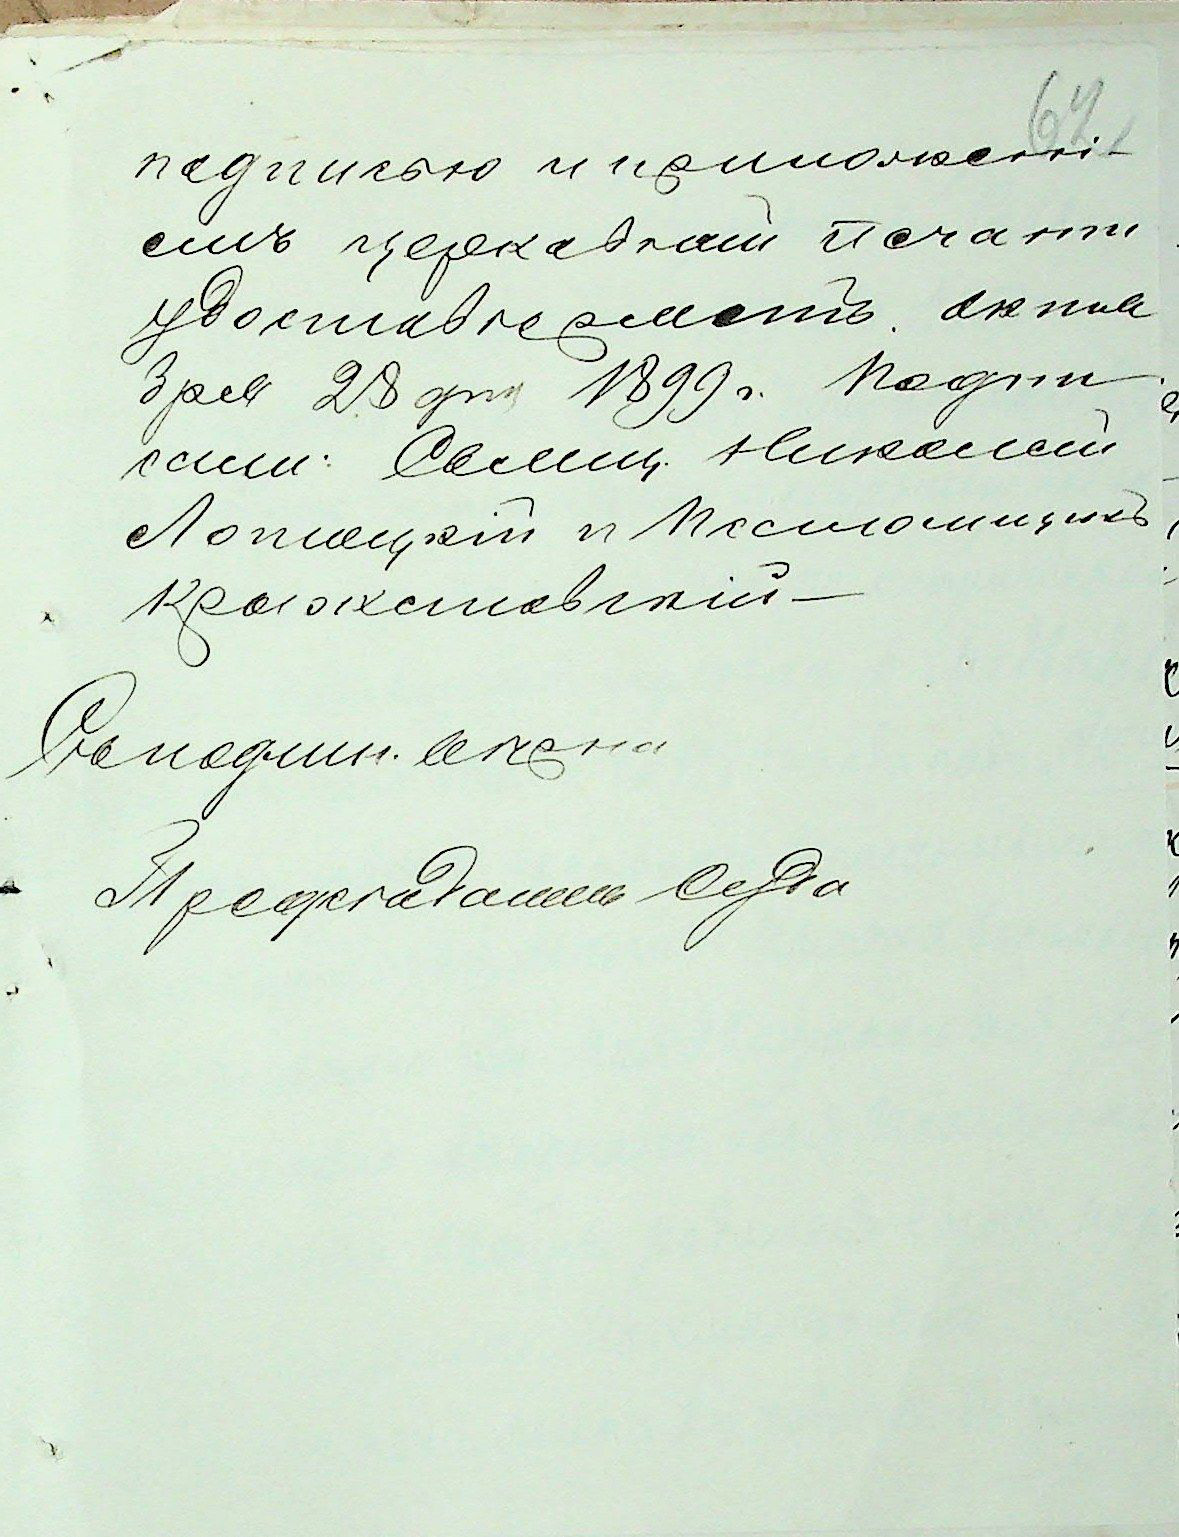 64
подписью и приложені-
емъ церковной печати
удостовѣряетъ. Октя
бря 28 дня 1899 г. Подпи
сали: Свящ. Николай
Лопа и Псаломщикъ
Кржановскій —
Съ подлин. вѣрна
Предсѣдатель Суда